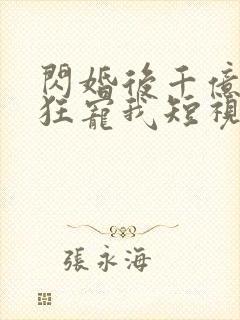 閃婚後千億
狂寵我短視
張永海